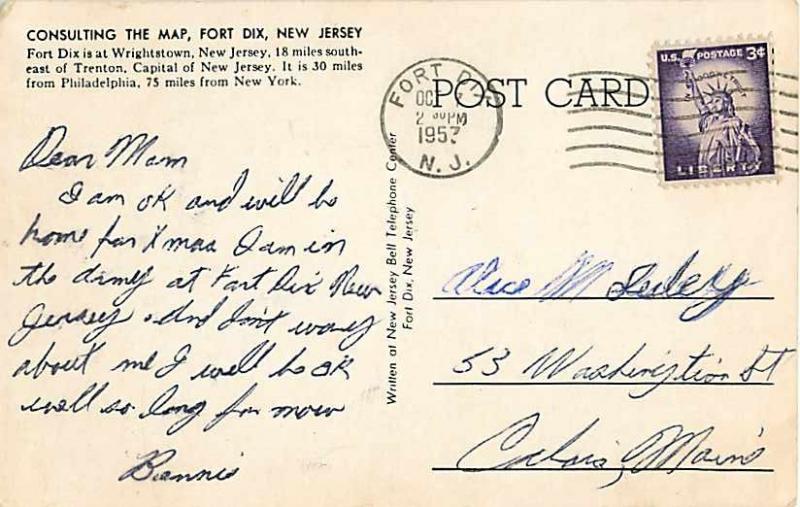 CONSULTING THE MAP, FORT DIX, NEW JERSEY
Fort Dix is at Wrightstown, New Jersey, 18 miles south-
east of Trenton, Capital of New Jersey. It is 30 miles
from Philadelphia, 75 miles from New York.
Dear Mom
I am OK and will be
home for Xmas I am in
the army at Fort Dix New
Jersey. And don't worry
about me I will be OK
well so long for now
Written at New Jersey Bell Telephone Center
Fort Dix, New Jersey
POST CARD
FORT DIX
OC
2 PM
1957
N. J.
U.S. POSTAGE 3¢
IN GOD WE TRUST
LIBERTY
Alice M
53 Washington St
Calais, Maine